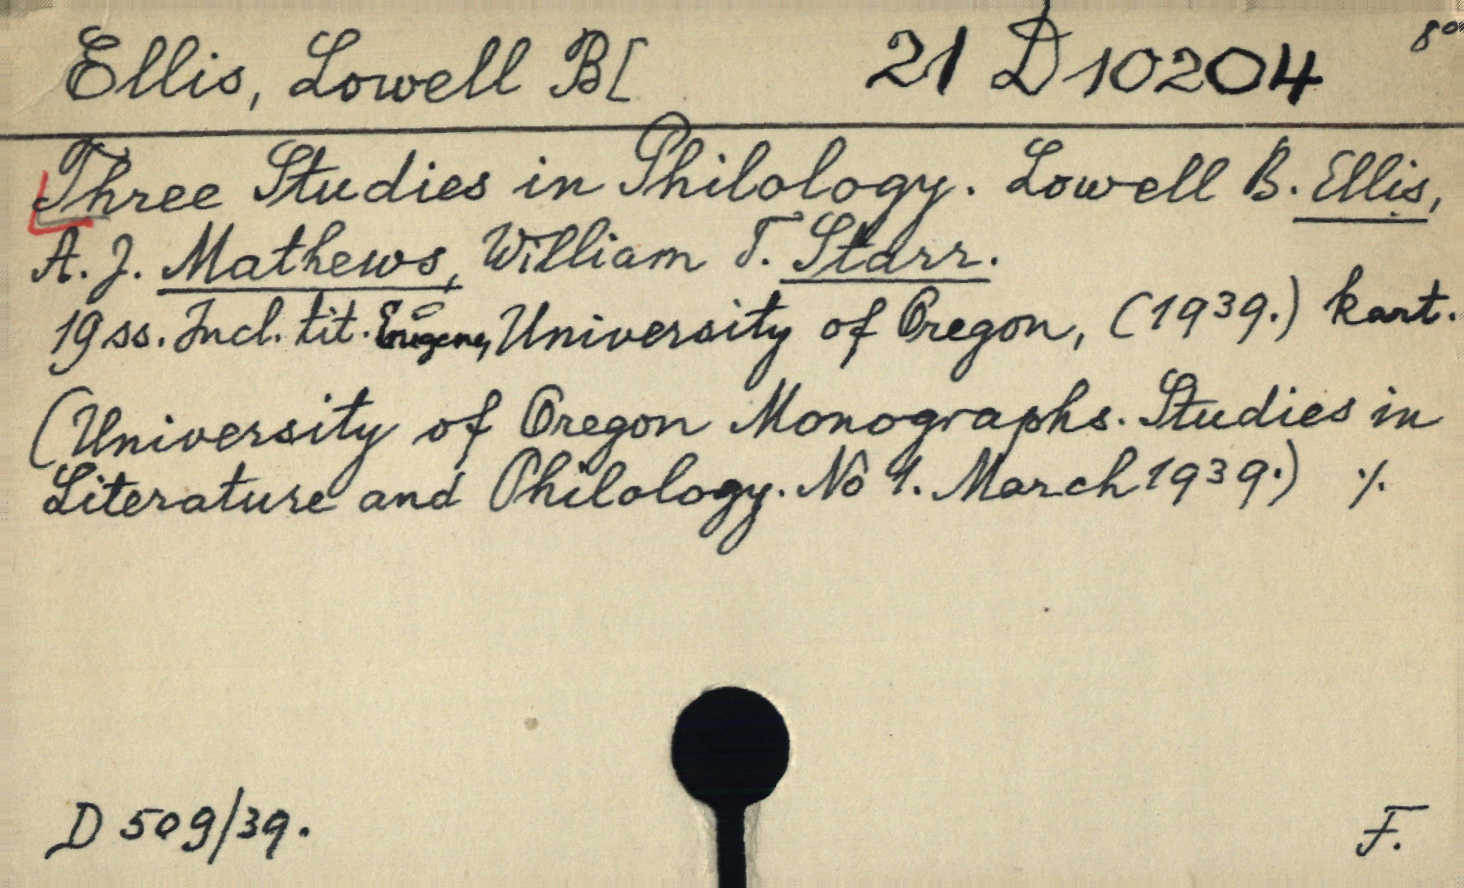 Ellis, Lowell B[ 21 D 10204 8°
Three Studies in Philology. Lowell B. Ellis,
A. J. Mathews, William T. Starr.
19 ss. Incl. tit. Eugene, University of Oregon, (1939.) kart.
(University of Oregon Monographs. Studies in
Literature and Philology. No 1. March 1939.) ·/.
D 509/39. F.